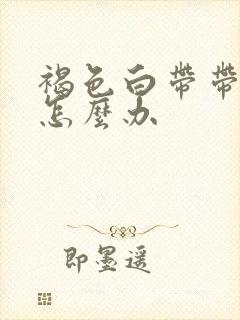 褐色白带带
怎麽办
即墨遥